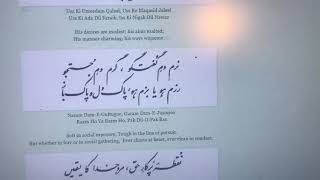 Uss Ki Umeedain Qaleel, Uss Ke Maqasid Jaleel
Uss Ki Ada Dil Faraib, Iss Ki Nigah Dil Nawaz
His desires are modest; his aims exalted;
His manner charming; his ways winsome
نرم دم گفتگو، گرم دم جستجو
رزم ہو یا بزم ہو، پاک دل و پاک باز
Naram Dam-E-Guftugoo, Garam Dam-E-Justujoo
Razm Ho Ya Bazm Ho, Pak Dil-O-Pak Baz
Soft in social exposure, Tough in the line of pursuit.
But whether in fray or in social gathering, Ever chaste at heart, ever clean in conduct.
نقطۂ پرکار حق، مرد خدا کا یقیں